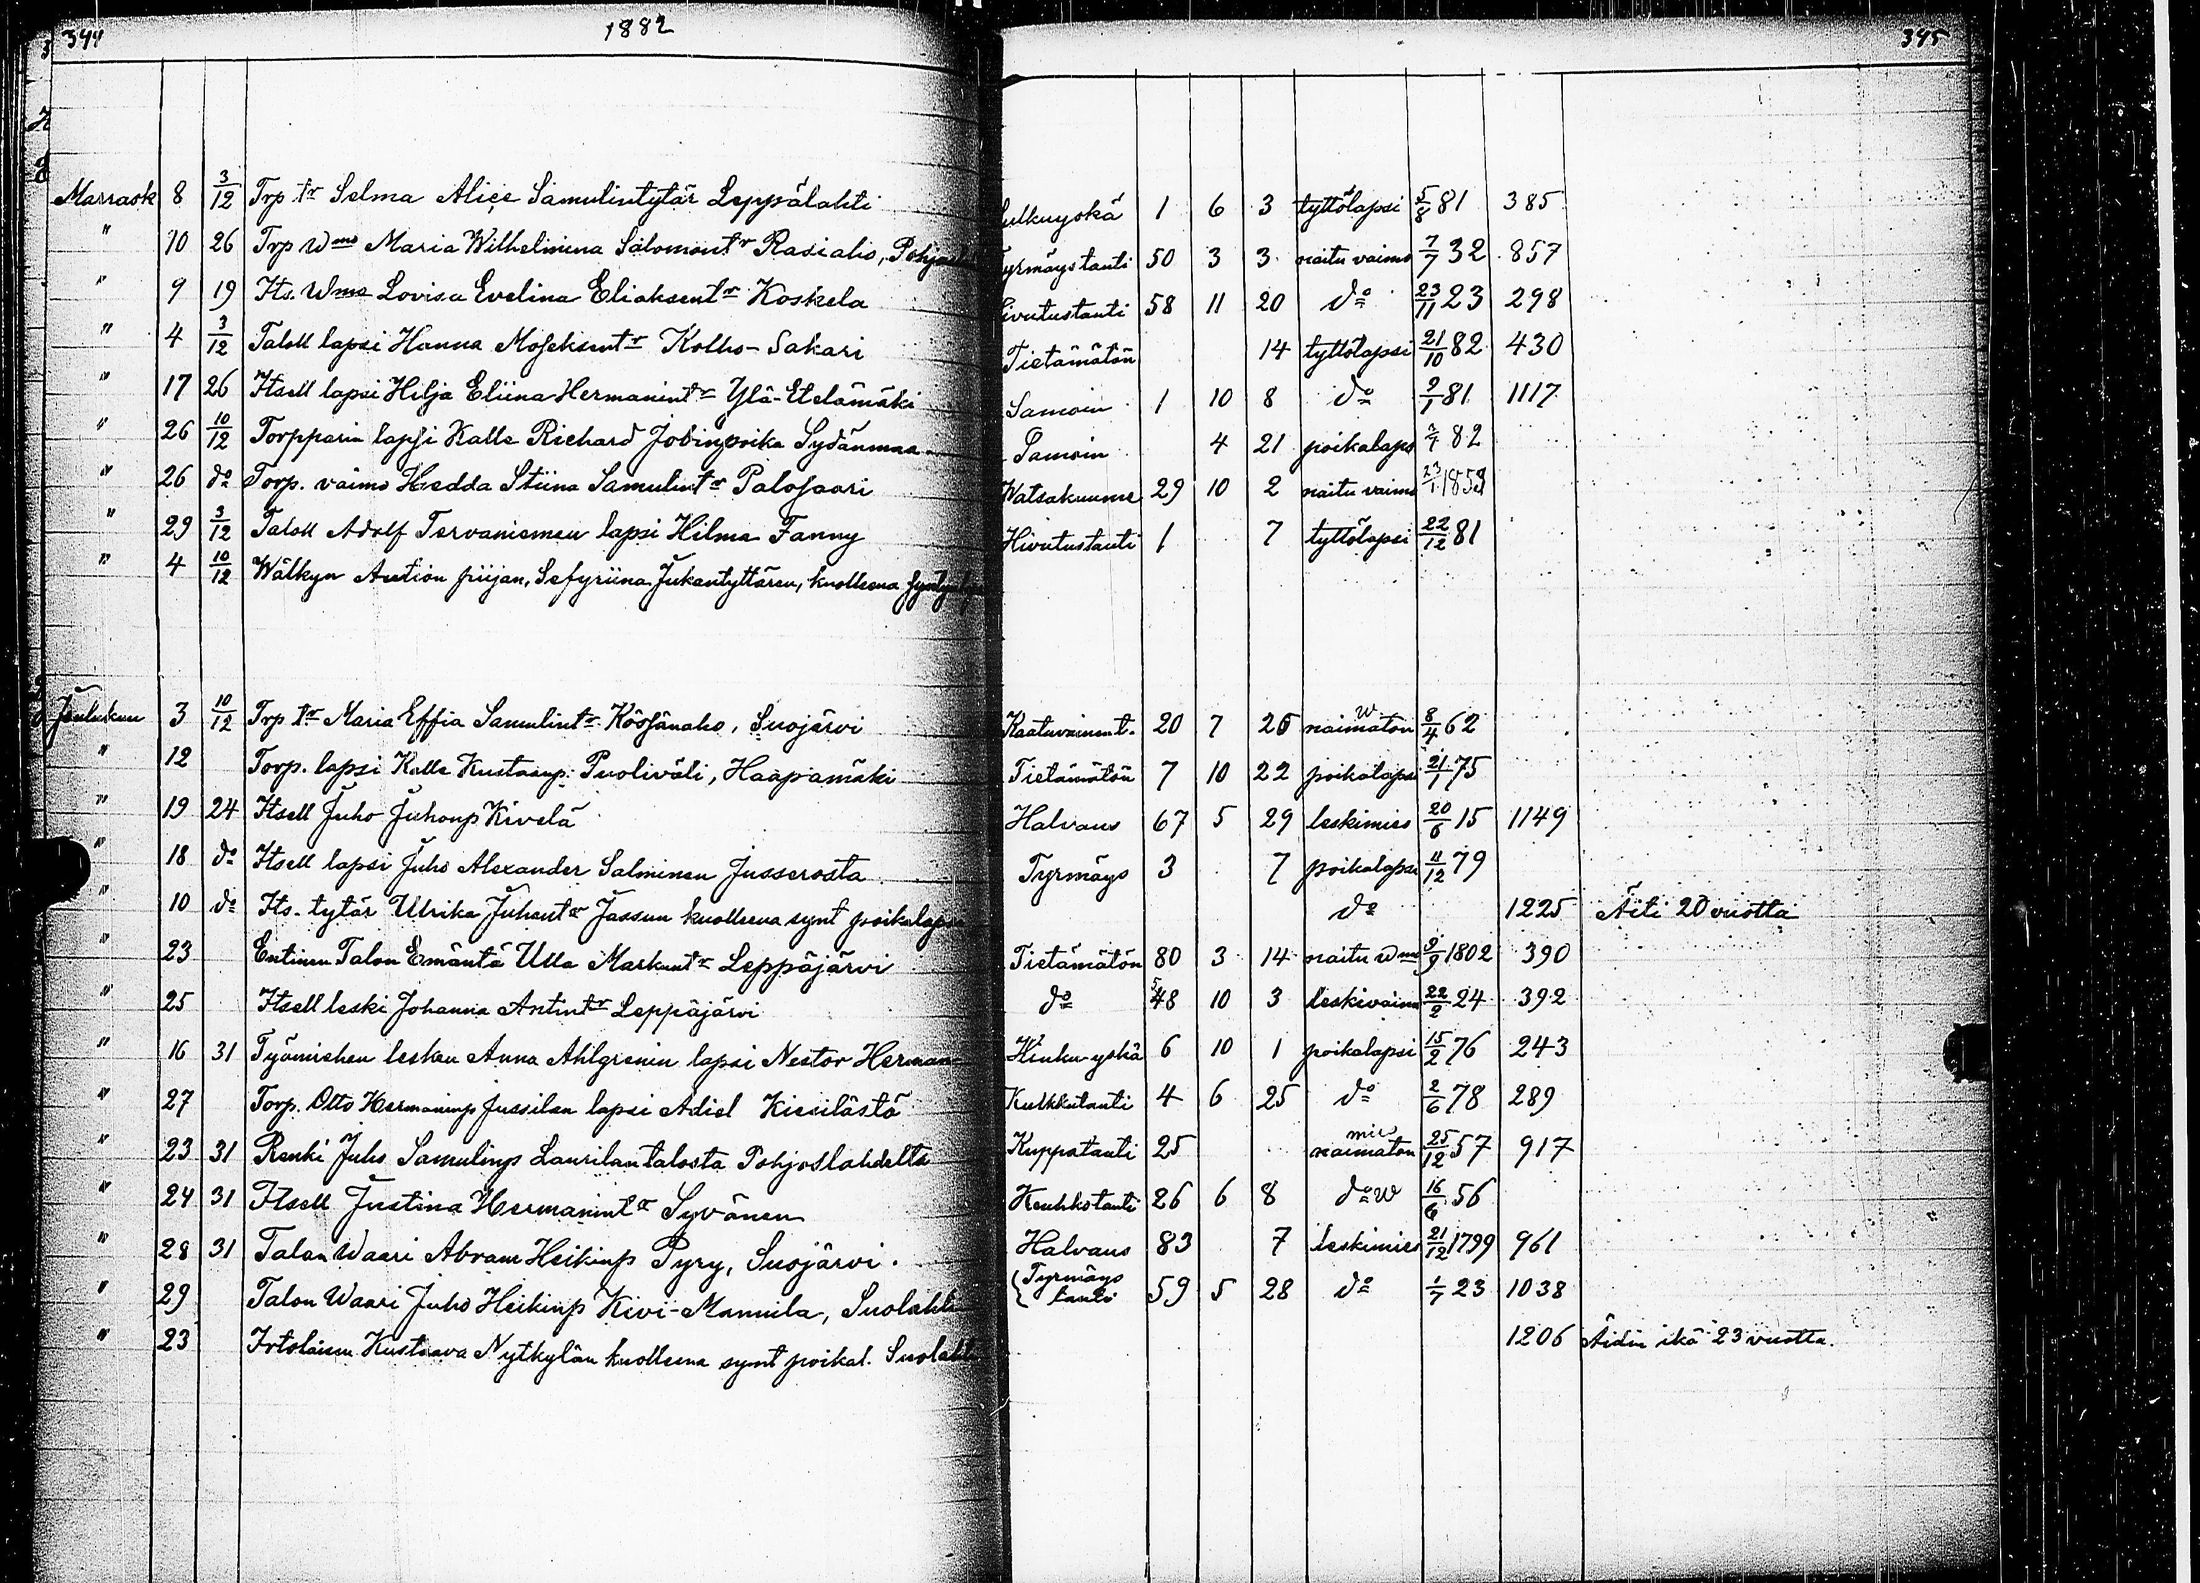 344 1882 345
Marrask 8 3/12 Trp tr Selma Alice Samulintytär Leppälahti 1 6 3 tyttölapsi 5/8 81 385
" 10 26 Trp Wmo Maria Wilhelmina Salomontr Rasialo, 50 3 3 naitu vaimo 7/7 32 857
" 9 19 Its. Wmo Lovisa Evelina Eliaksentr Koskela 58 11 20 do 23/11 23 298
" 4 3/12 Taloll lapsi Hanna Moseksentr Kolho-Sakari Tietämätön 14 tyttölapsi 21/10 82 430
" 17 26 Itsell lapsi Hilja Eliina Hermanintr Ylä-Etelämäki Samoin 1 10 8 do 9/1 81 1117
" 26 10/12 Torpparin lapsi Kalle Richard Jobinpoika Sydänmaa Samoin 4 21 poikalaps 82
" 26 do Torp. vaimo Hedda Stiina Samulintr Palosaari Watsakuume 29 10 2 naitu vaimo 23/1 1853
" 29 3/12 Taloll Adolf Tervaniemen lapsi Hilma Fanny Hivutustauti 1 7 tyttölapsi 22/12 81
" 4 10/12 Wälkyn Aution piijan, Sefyriina Jukantyttären, kuolleena
Joulukuu 3 10/12 Trp tr Maria Effia Samulintr Köösänaho, Suojärvi Kaatuvainent. 20 7 25 naimaton w 8/4 62
" 12 Torp. lapsi Kalle Kustaanp. Puoliväli, Haapamäki Tietämätön 7 10 22 poikalapsi 21/1 75
" 19 24 Itsell Juho Juhonp Kivelä Halvaus 67 5 29 leskimies 20/6 15 1149
" 18 do Itsell lapsi Juho Alexander Salminen Jusserosta Tyrmäys 3 7 poikalapsi 11/12 79
" 10 do Its. tytär Ulrika Juhontr Jassun kuolleena synt poikalapsi do 1225 Äiti 20 vuotta
" 23 Entinen Talon Emäntä Ulla Markuntr Leppäjärvi Tietämätön 80 3 14 naitu wmo 9/9 1802 390
" 25 Itsell leski Johanna Antintr Leppäjärvi do 58 10 3 leskivaimo 22/2 24 392
" 16 31 Työmiehen lesken Anna Ahlgrenin lapsi Nestor Herman Hinku yskä 6 10 1 poikalapsi 15/2 76 243
" 27 Torp. Otto Hermaninp Jussilan lapsi Adiel Kiesilästä Kulkkutauti 4 6 25 do 2/6 78 289
" 23 31 Renki Juho Samulinp Laurilan talosta Pohjoslahdelta Kuppatauti 25 naimaton mies 25/12 57 917
" 24 31 Itsell Justina Hermanintr Syvänen Keuhkotauti 26 6 8 do w 16/6 56
" 28 31 Talon Waari Abram Heikinp Pyry, Suojärvi. Halvaus 83 7 leskimies 21/12 1799 961
" 29 Talon Waari Juho Heikinp Kivi-Mannila, Suolahti Tyrmäys tauti 59 5 28 do 1/7 23 1038
" 23 Irtolaisen Kustaava Nytkylän kuolleena synt poikal. Suolahti 1206 Äidin ikä 23 vuotta.